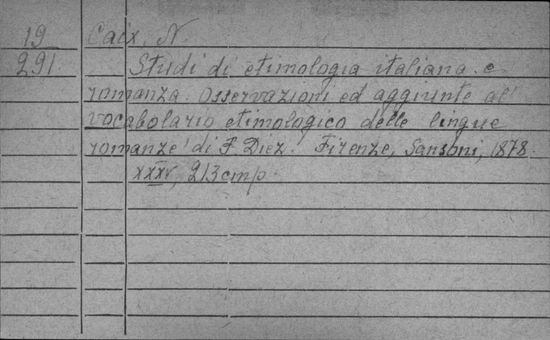 19 Caix, N.
291. Studi di etimologia italiana e
romanza. Osservazioni ed aggiunte al'
vocabolario etimologico delle lingue
romanze' di F. Diez. Firenze, Sansoni, 1878.
XXXV, 213 стр.